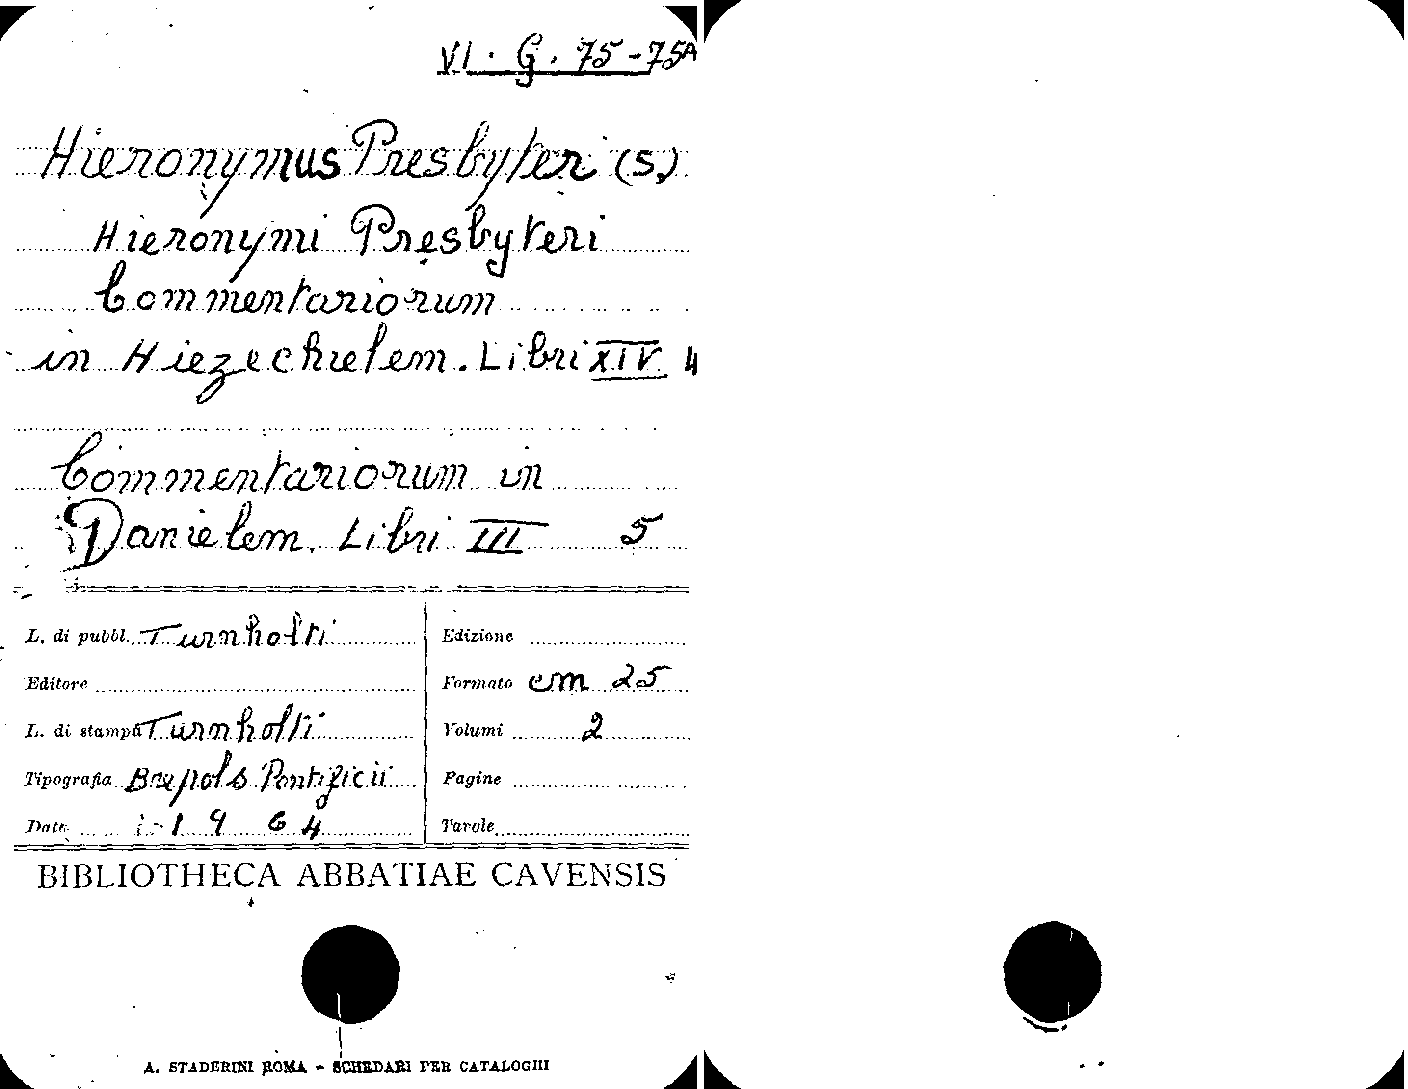 VI. G. 75-75A
Hieronymus Presbyter (S.)
Hieronymi Presbyteri
Commentariorum
in Hiezechielem. Libri XIV 4
Commentariorum in
Danielem. Libri III 5
L. di pubbl. Turnholti
Edizione
Editore
Formato cm 25
L. di stampa Turnholti
Volumi 2
Tipografia Brepols Pontificii
Pagine
Data 1964
Tavole
BIBLIOTHECA ABBATIAE CAVENSIS
A. STADERINI ROMA - SCHEDARI PER CATALOGHI